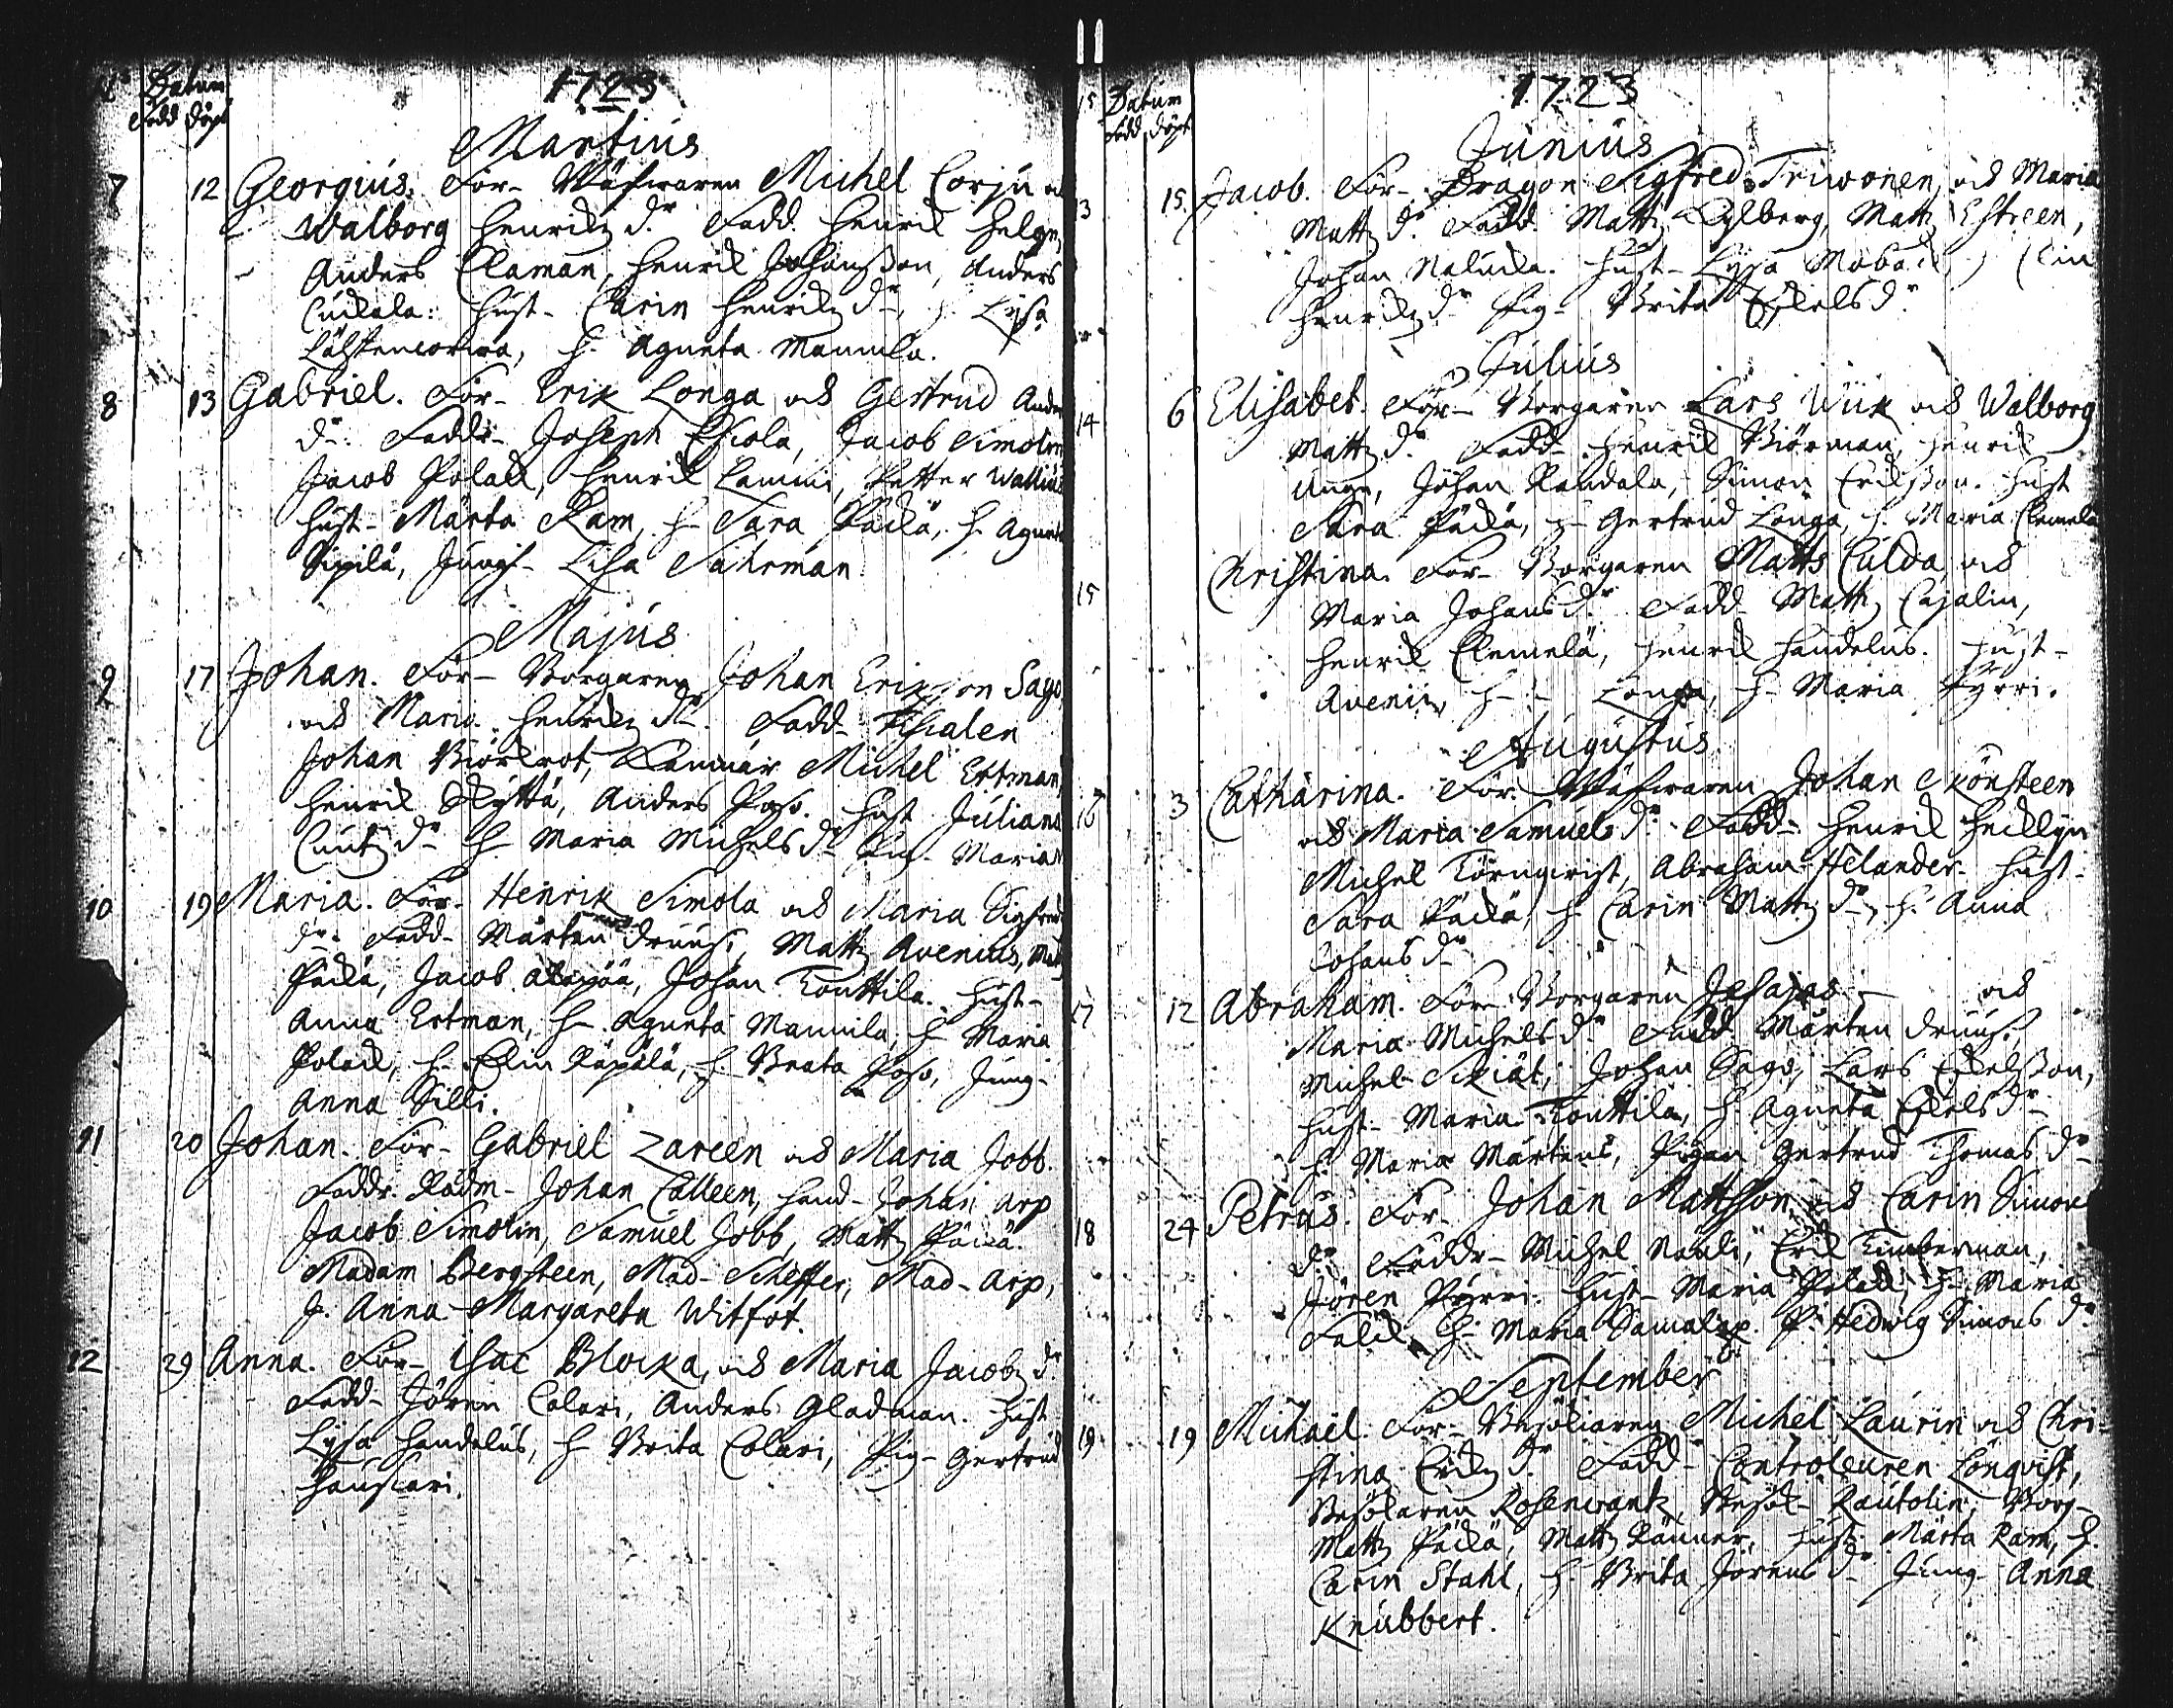 Datum
Född döpt
1723
Martius
7 12 Georgius. För- Michel Corju
Walborg Henriks dr Fadd. Henrik Helge,
Anders Claman, Henrik Johansson, Anders
Cuckala: Hust- Carin Henriks dr, h. Lisa
h. Agneta Mannila.
8 13 Gabriel. För- Erik Longa och Gertrud Anders
dr. Faddr- Joseph Jacob Simolin
Jacob Polack, Henrik Lammi, Petter Wallius
Hust- Märta Ram, h- Sara Päckä, h. Agneta
Sipilä, Jungf- Lisa Sahrman.
Majus
9 17 Johan. För- Borgaren Johan Eriksson Sago
och Maria Henriks dr. Fadd- Fiscalen
Johan Biörkrot, Michel Ertman,
Henrik Skyttä, Anders Poso. Hust Juliana
Cnuts dr h. Maria Michels dr Pig- Maria
10 19 Maria. För- Henrik Simola och Maria Sigfreds
dr. Fadd- Mårten Druus, Matts Avenius, Matts
Päckä, Jacob Alapää, Johan Kouttila. Hust-
Anna Ertman, h- Agneta Mannila, h Maria
Polack, h- Elin Räpälä, h. Beata Poso, Jung-
Anna Silli.
11 20 Johan. För- Gabriel Zareen och Maria Jobb.
Faddr. Rådm- Johan Calleen, Hand- Johan Arp
Jacob Simolin, Samuel Jobb, Matts Päckä.
Madam Bergsteen, Mad- Scheffer, Mad- Arp,
J. Anna Margareta Witfot.
12 29 Anna. För- Isac Blocka, och Maria Jacobs dr
Fadd- Jören Colari, Anders Gladman. Hust
Lysa Handelus, h- Brita Colari, Pig- Gertrud
Hauscari.
15 Datum
Född döpt
1723
Junius
13 15. Jacob. För- Dragon Sigfred Triwonen, och Maria
Matts dr. Fadd. Matts Matts Estreen,
Johan Hust- Lysa
Henriks dr Pig- Brita Eskels dr
Julius
14 6 Elisabet. För- Borgaren Lars Wiik och Walborg
Matts dr. Fadd- Henrik Biörman, Henrik
Unge, Johan Randala, Simon Eriksson. Hust
Sara Päckä, h- Gertrud Longa, h. Maria Clemelä
15 Christina. För- Borgaren Matts Culda och
Maria Johans dr. Fadd- Matts Cajalin,
Henrik Clemelä, Henrik Handelus. Hust-
h- - Longa, h- Maria Pyrri.
Augustus
16 3 Catharina. För- Johan Skönsteen
och Maria Samuels dr. Fadd- Henrik
Michel Törnqvist, Abraham Helander- Hust-
Sara Päckä, h. Carin Matts dr, h. Anna
Johans dr
17 12 Abraham. För- Borgaren Jesajas - och
Maria Michels dr Fadd. Mårten Druus,
Michel Skiät, Johan Sago, Lars Eskelsson,
Hust- Maria Kouttila, h. Agneta Eskels dr
h. Maria Mårtens, Pigan Gertrud Thomas dr
18 24 Petrus. För- Johan Mattsson och Carin Simons
dr Faddr- Michel Nauli, Erik Timberman,
Jören Pyrri. Hust- Maria Polack, h- Maria
Falck, h- Maria P. Hedwig Simons dr
September
19 19 Michaël. För- Besökaren Michel Laurin och Chri-
stina Eriks dr. Fadd- Controleuren Lönqvist,
Besökaren Rosenvantz, Besök- Rautolin, Borg-
Matts Päckä, Matts Ränner, Hust- Märta Ram, h.
Carin Stahl, h. Brita Jörens dr Jung- Anna
Knubbert.